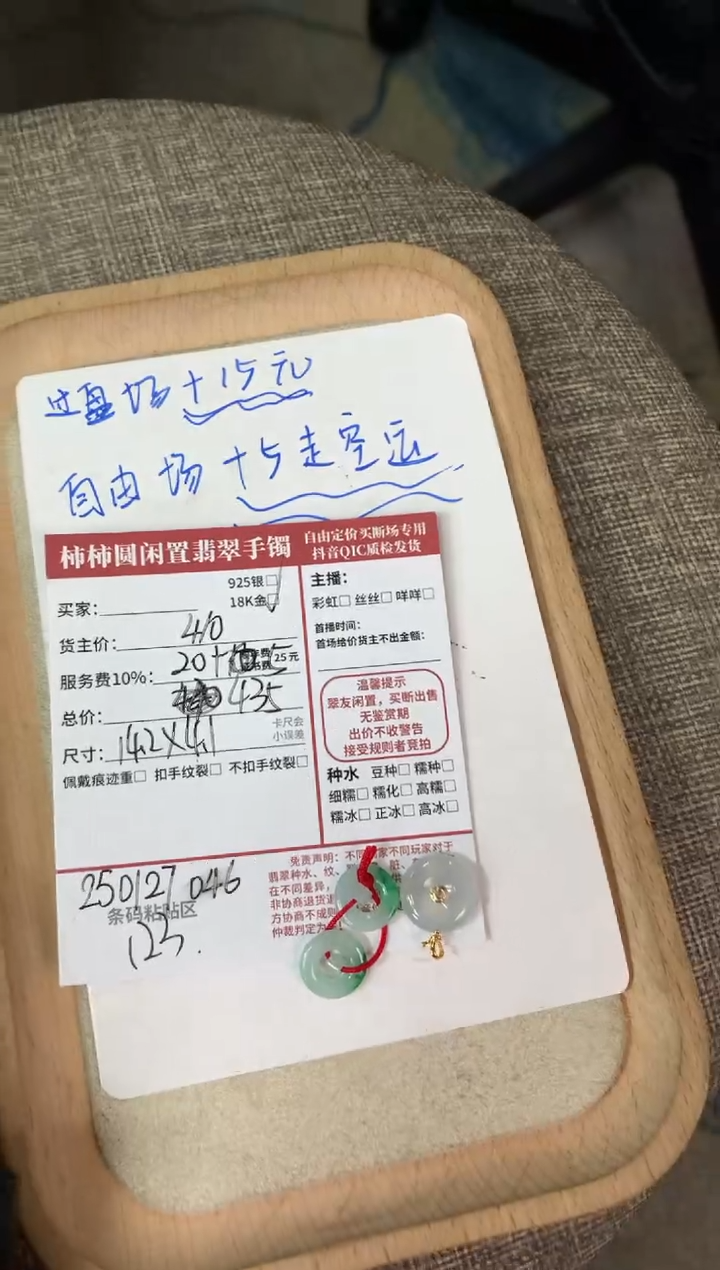 过盘场+15元
自由场+5走空运
柿柿圆闲置翡翠手镯
自由定价买断场专用
抖音QIC质检发货
925银□
18K金□
买家：
货主价：410
服务费10%：20+
25元
总价：435
卡尺会
小误差
尺寸：14.2X4.1
佩戴痕迹重□ 扣手纹裂□ 不扣手纹裂□
主播：
彩虹□ 丝丝□ 咩咩□
首播时间：
首场给价货主不出金额：
温馨提示
翠友闲置，买断出售
无鉴赏期
出价不收警告
接受规则者竞拍
种水 豆种□ 糯种□
细糯□ 糯化□ 高糯□
糯冰□ 正冰□ 高冰□
250127 046
条码粘贴区
123.
免责声明：不同 家不同玩家对于
翡翠种水、纹、
在不同差异，
非协商退货退
方协商不成则
仲裁判定为